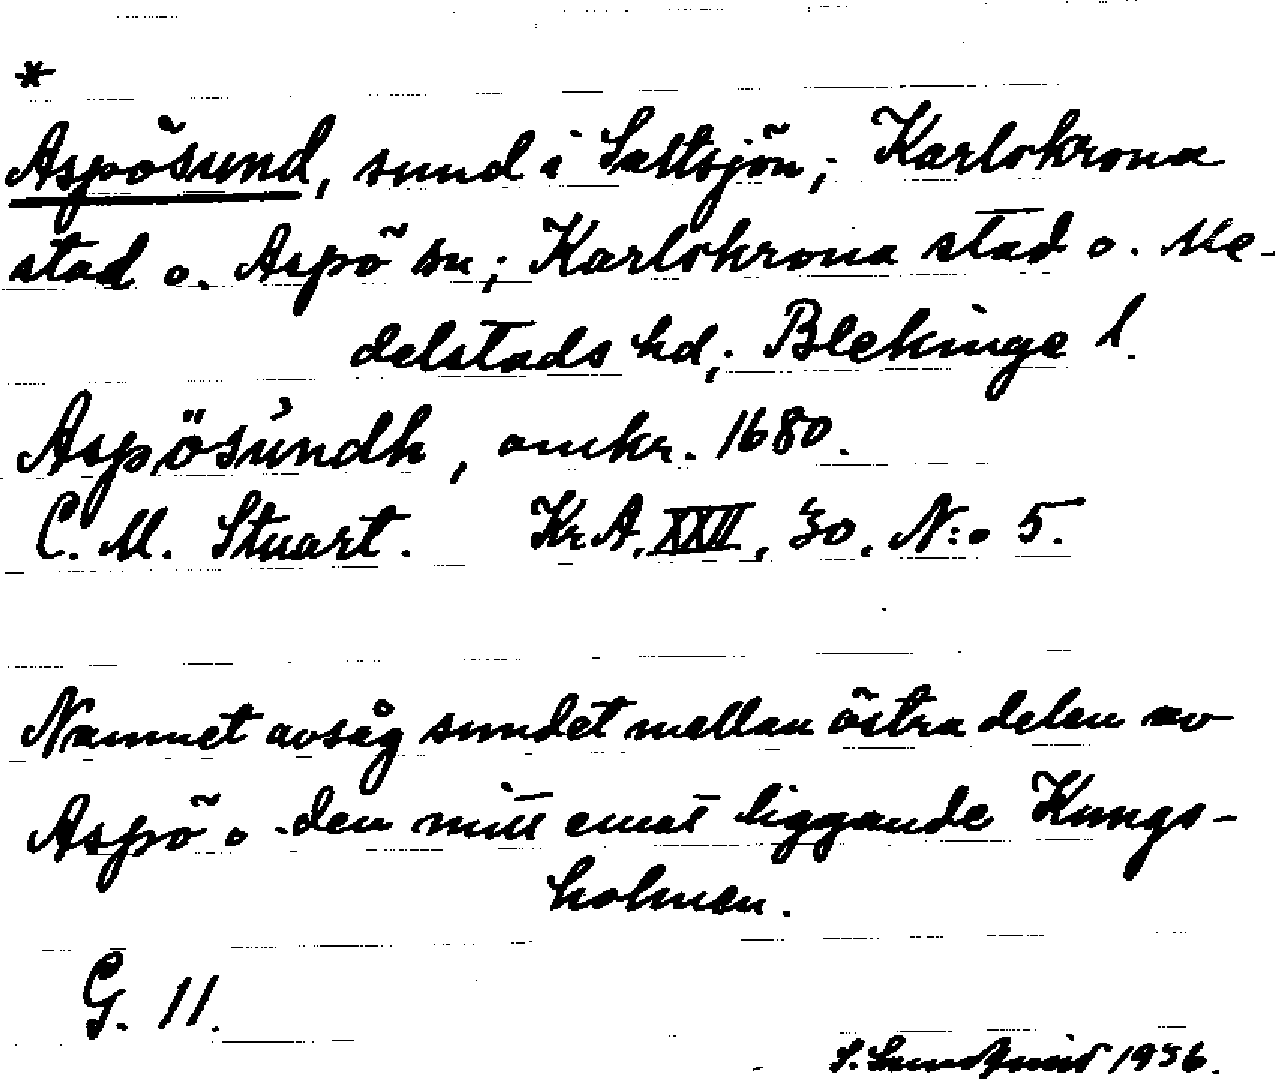 *
Aspösund, sund i Saltsjön; Karlskrona
stad o. Aspö sn; Karlskrona stad o. Me-
delstads hd; Blekinge l.
Aspösúndh, omkr. 1680.
C. M. Stuart. Kr.A. XXII, 30. N:o 5.
Namnet avsåg sundet mellan östra delen av
Aspö o. den mitt emot liggande Kungs-
holmen.
G. 11.
1956.